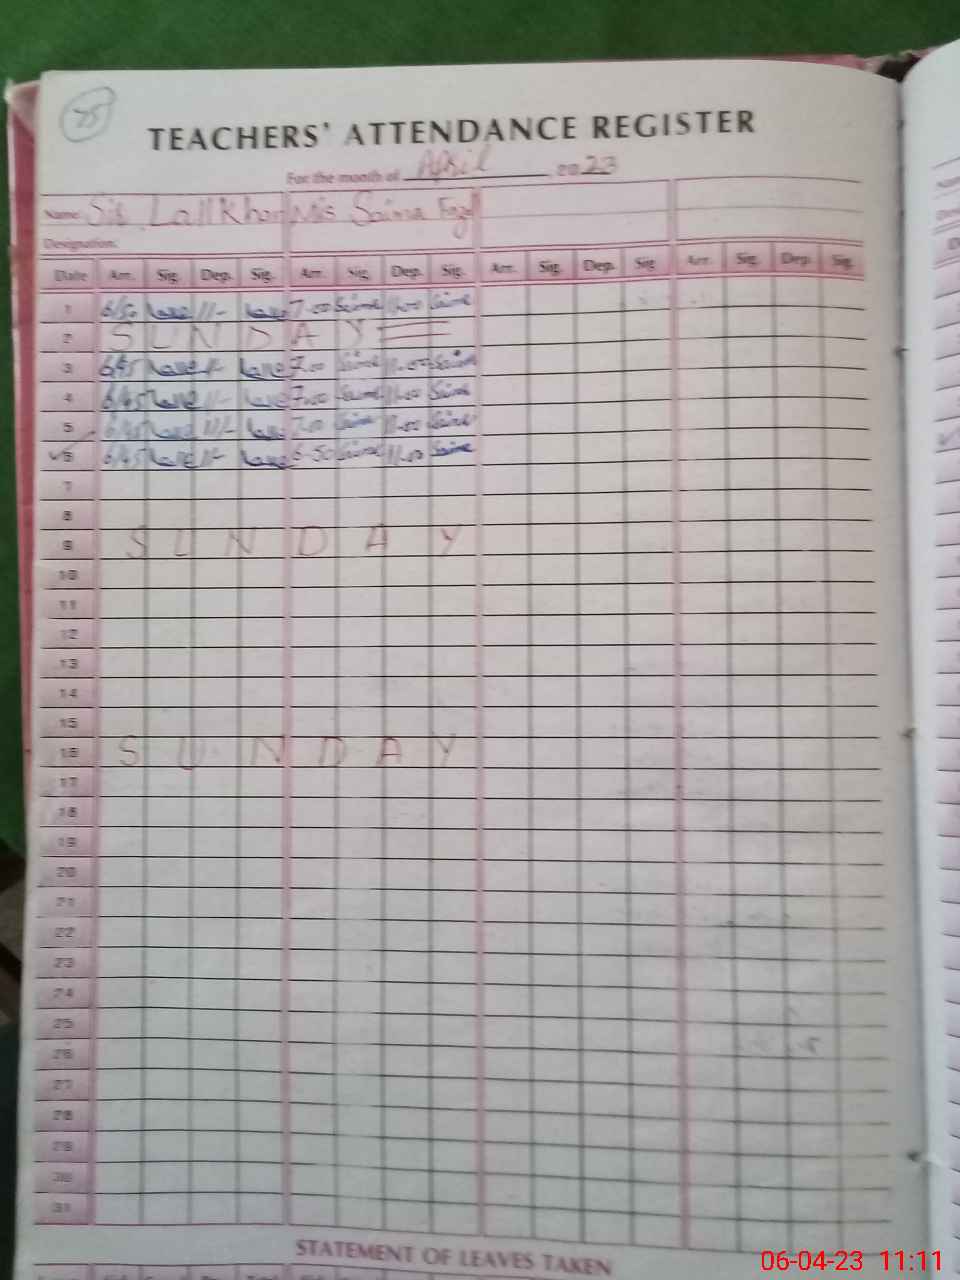 75
TEACHERS' ATTENDANCE REGISTER
For the month of April 2023
Name: Sir Lall Khan Mis Saima Fazal
Designation:
Date Arr. Sig. Dep. Sig. Arr. Sig. Dep. Sig. Arr. Sig. Dep. Sig. Arr. Sig. Dep. Sig.
1 6/50 11/- 7-00 Saima 11.00 Saima
2 S U N D A Y
3 6/45 7.00 Saima 11.00 Saima
4 6/45 11/- 7.00 Saima 11.00 Saima
5 6/45 11/- 7.00 Saima 11.00 Saima
6 6/45 11/- 6-50 Saima 11.00 Saima
7
8
9 S U N D A Y
10
11
12
13
14
15
16 S U N D A Y
17
18
19
20
21
22
23
24
25
26
27
28
29
30
31
STATEMENT OF LEAVES TAKEN
06-04-23 11:11